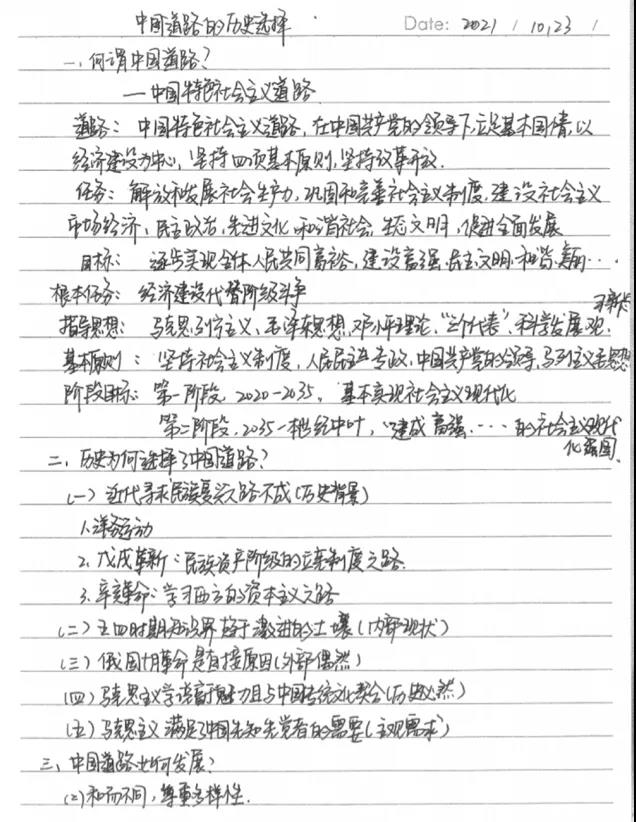 中国道路的历史选择
Date: 2021 / 10,23 /
一、何谓中国道路?
—中国特色社会主义道路
道路: 中国特色社会主义道路,在中国共产党的领导下,立足基本国情,以
经济建设为中心,坚持四项基本原则,坚持改革开放.
任务: 解放和发展社会生产力,巩固和完善社会主义制度,建设社会主义
市场经济、民主政治,先进文化,和谐社会,生态文明,促进全面发展
目标: 逐步实现全体人民共同富裕,建设富强、民主、文明、和谐、美丽…
根本任务: 经济建设代替阶级斗争
指导思想: 马克思列宁主义、毛泽东思想,邓小平理论,“三个代表”,科学发展观.
基本原则: 坚持社会主义制度,人民民主专政,中国共产党的领导,马列主义毛思想
阶段目标: 第一阶段,2020-2035, 基本实现社会主义现代化
第二阶段,2035-本世纪中叶,建成富强……的社会主义现代
化强国.
二、历史为何选择了中国道路?
(一)近代寻求民族复兴之路不成(历史背景)
1.洋务运动
2.戊戌革新:民族资产阶级的立宪制度之路.
3.辛亥革命:学习西方的资本主义之路
(二)五四时期知识界趋于激进的土壤(内部现状)
(三)俄国十月革命是直接原因(外部偶然)
(四)马克思主义学说新魅力且与中国传统文化契合(历史必然)
(五)马克思主义满足了中国先知先觉者的需要(主观需求)
三、中国道路如何发展?
(2)和而不同,尊重多样性.